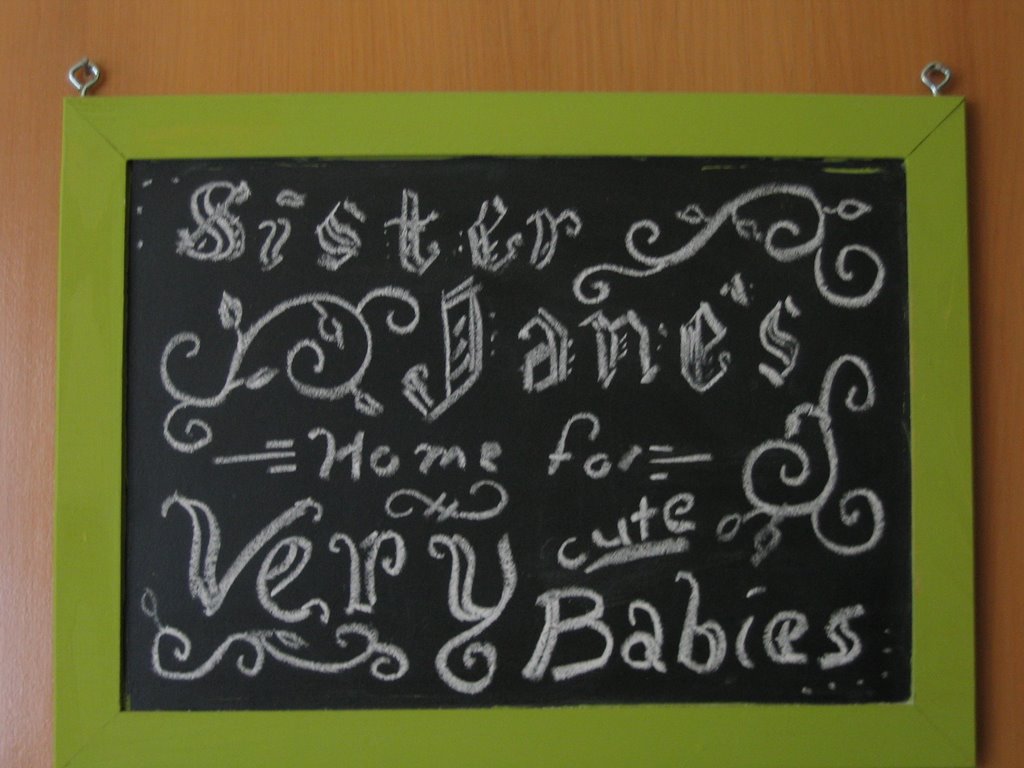 Sister
Jane's
Home for
Very cute
Babies